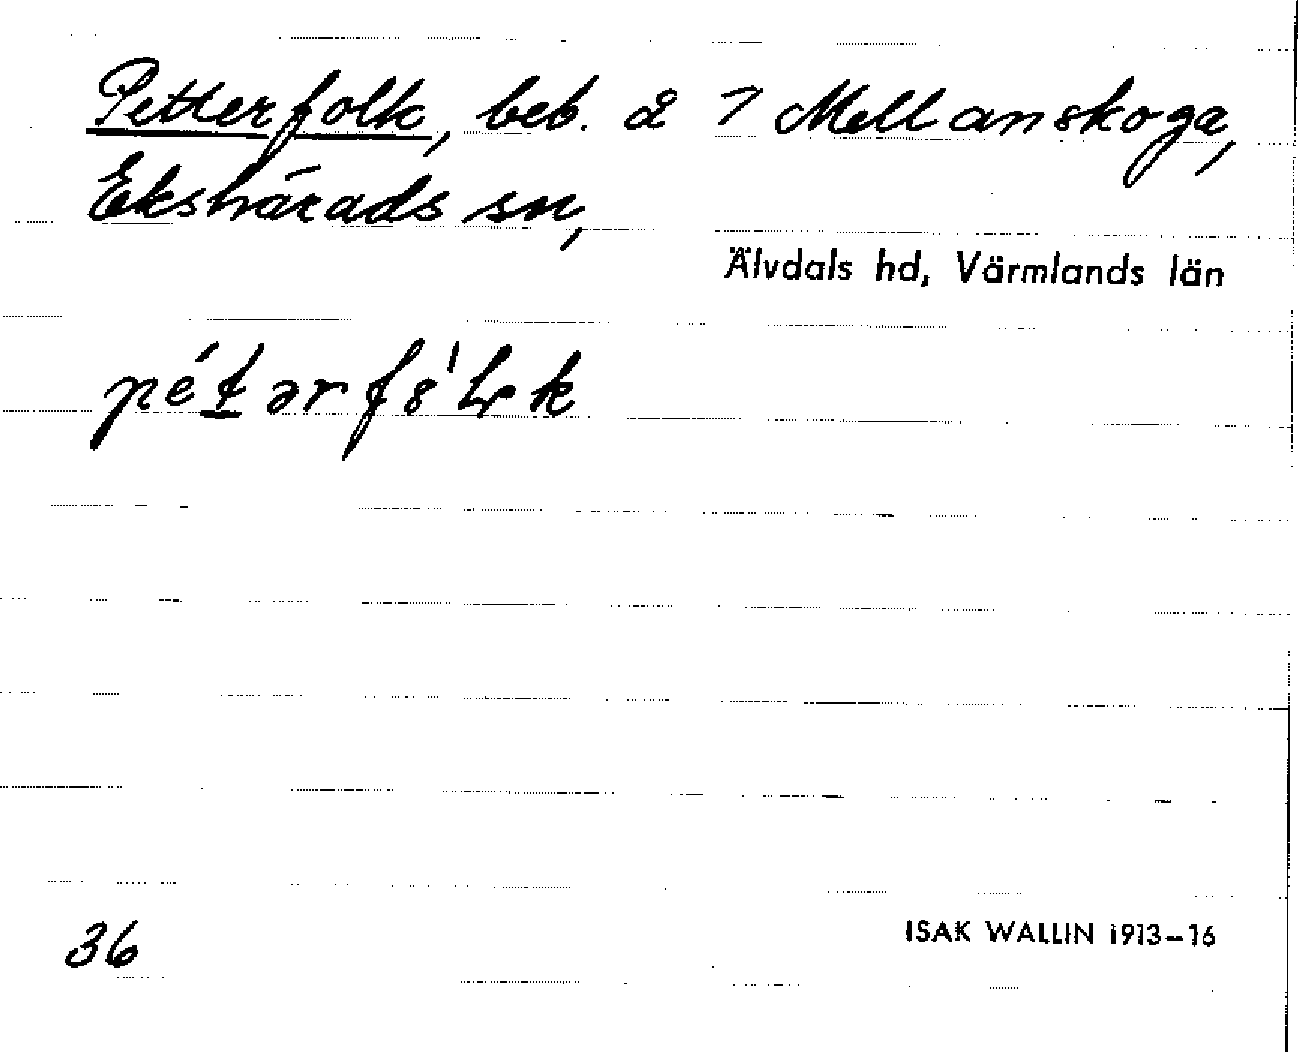 Petterfolk, beb. å 7 Mellanskoga,
Ekshärads sn,
Älvdals hd, Värmlands län
pét̲ərf8'Lk
36
ISAK WALLIN 1913–16